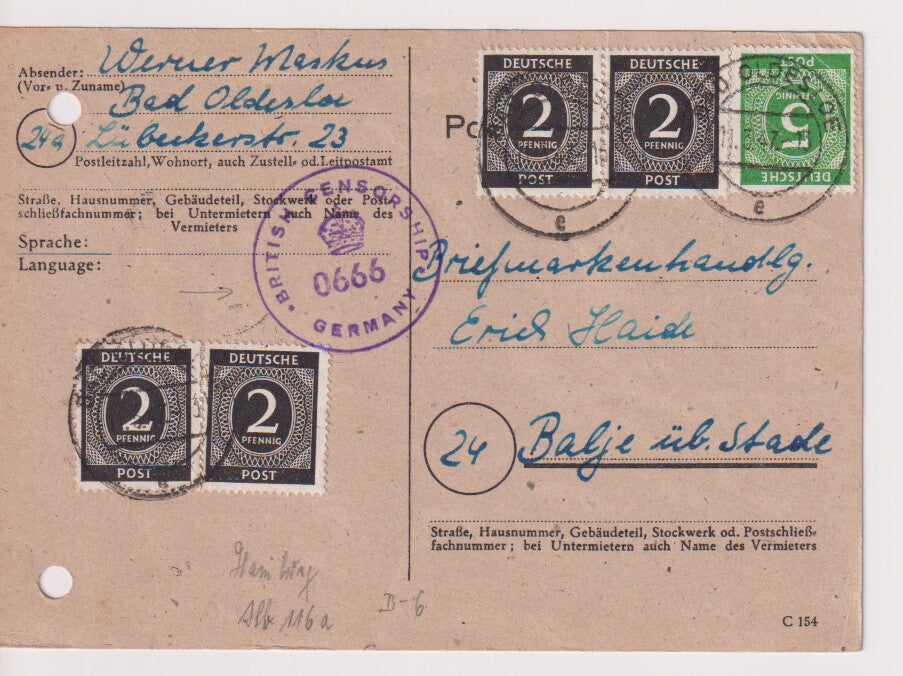 Absender: Werner Maskus
(Vor- u. Zuname)
Bad Oldesloe
24a Lübeckerstr. 23
Postleitzahl, Wohnort, auch Zustell- od. Leitpostamt
Straße, Hausnummer, Gebäudeteil, Stockwerk oder Post-
schließfachnummer; bei Untermietern auch Name des
Vermieters
Sprache:
Language:
BRITISH CENSORSHIP
0666
GERMANY
DEUTSCHE
2
PFENNIG
POST
DEUTSCHE
2
PFENNIG
POST
DEUTSCHE
5
PFENNIG
POST
e
e
Briefmarkenhandlg.
Erich Haide
24 Balje üb. Stade
Straße, Hausnummer, Gebäudeteil, Stockwerk od. Postschließ-
fachnummer; bei Untermietern auch Name des Vermieters
DEUTSCHE
2
PFENNIG
POST
DEUTSCHE
2
PFENNIG
POST
e
Hamburg
116a
B-6
C 154